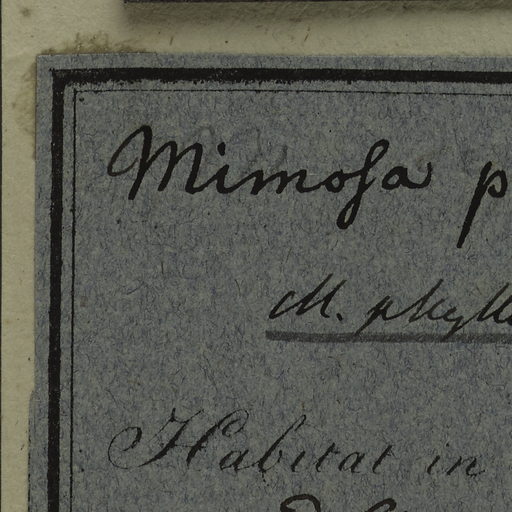 Mimosa p
M. phyllo
Habitat in